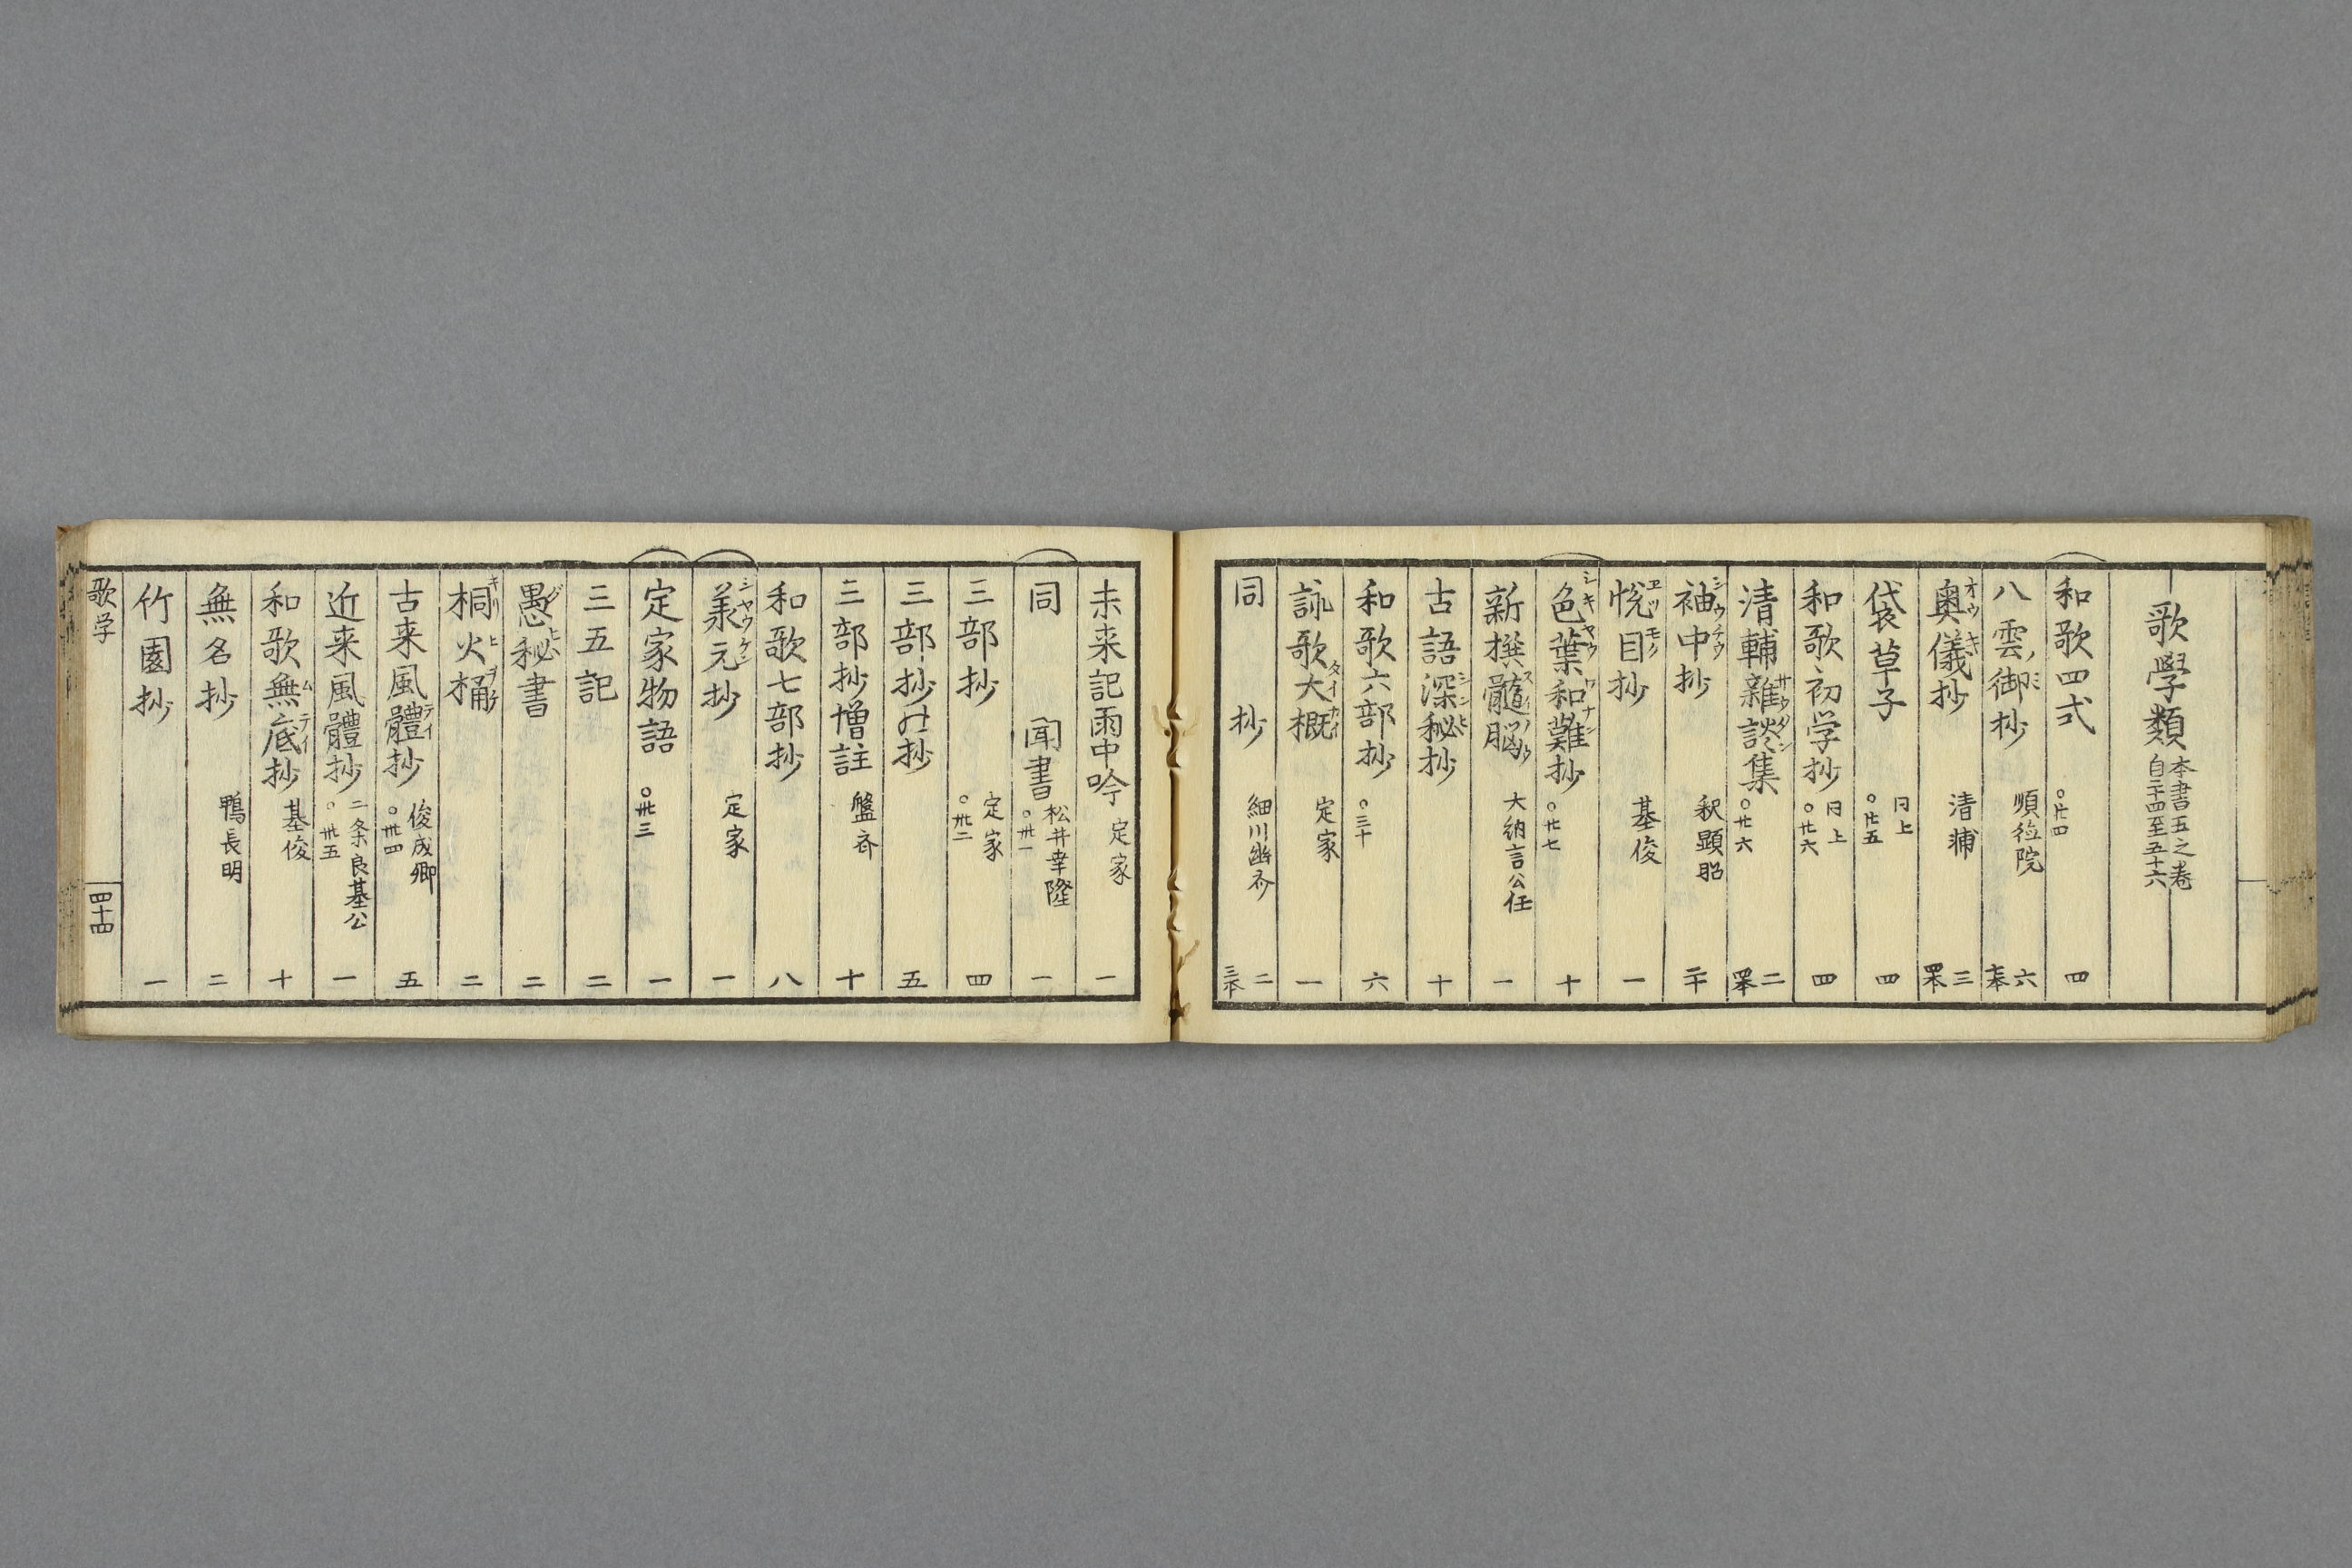 歌學類 本書五之巻 自二十四至五十六
和歌四式 ○廿四 四
八雲御抄 順徳院 六 七本
奥儀抄 清輔 三 四本
袋草子 同上 ○廿五 四
和歌初学抄 同上 ○廿六 四
清輔雜談集 ○廿六 二 四本
袖中抄 釈顕昭 二十
悦目抄 基俊 一
色葉和難抄 ○廿七 十
新撰髓脳 大納言公任 一
古語深秘抄 十
和歌六部抄 ○三十 六
詠歌大概 定家 一
同 抄 細川幽斎 二 三本
未来記雨中吟 定家 一
同 聞書 松井幸隆 ○卅一 一
三部抄 定家 ○卅二 四
三部抄の抄 五
三部抄増註 盤斉 十
和歌七部抄 八
義元抄 定家 一
定家物語 ○卅三 一
三五記 二
愚秘書 二
桐火桶 二
古来風體抄 俊成卿 ○卅四 五
近来風體抄 二条良基公 ○卅五 一
和歌無底抄 基俊 十
無名抄 鴨長明 二
竹園抄 一
歌学 四十四